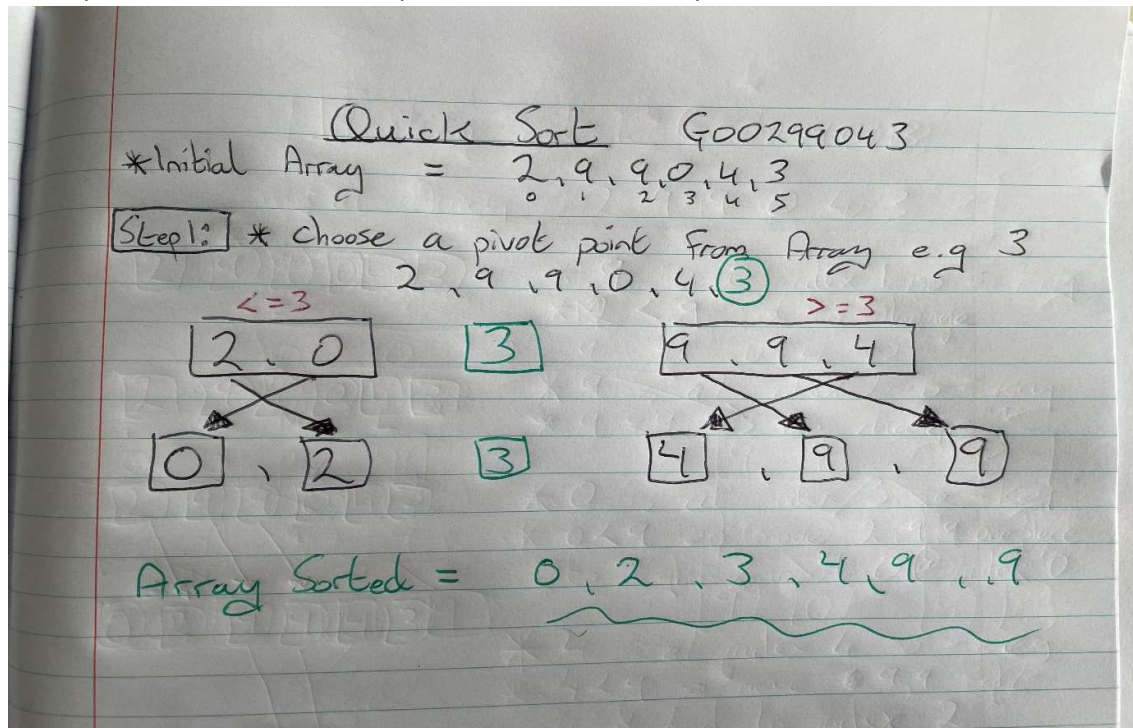 Quick Sort G00299043
*Initial Array = 2, 9, 9, 0, 4, 3
0 1 2 3 4 5
Step1: * Choose a pivot point from Array e.g 3
2, 9, 9, 0, 4, 3
<=3 >=3
2, 0 3 9, 9, 4
0, 2 3 4, 9, 9
Array Sorted = 0, 2, 3, 4, 9, 9